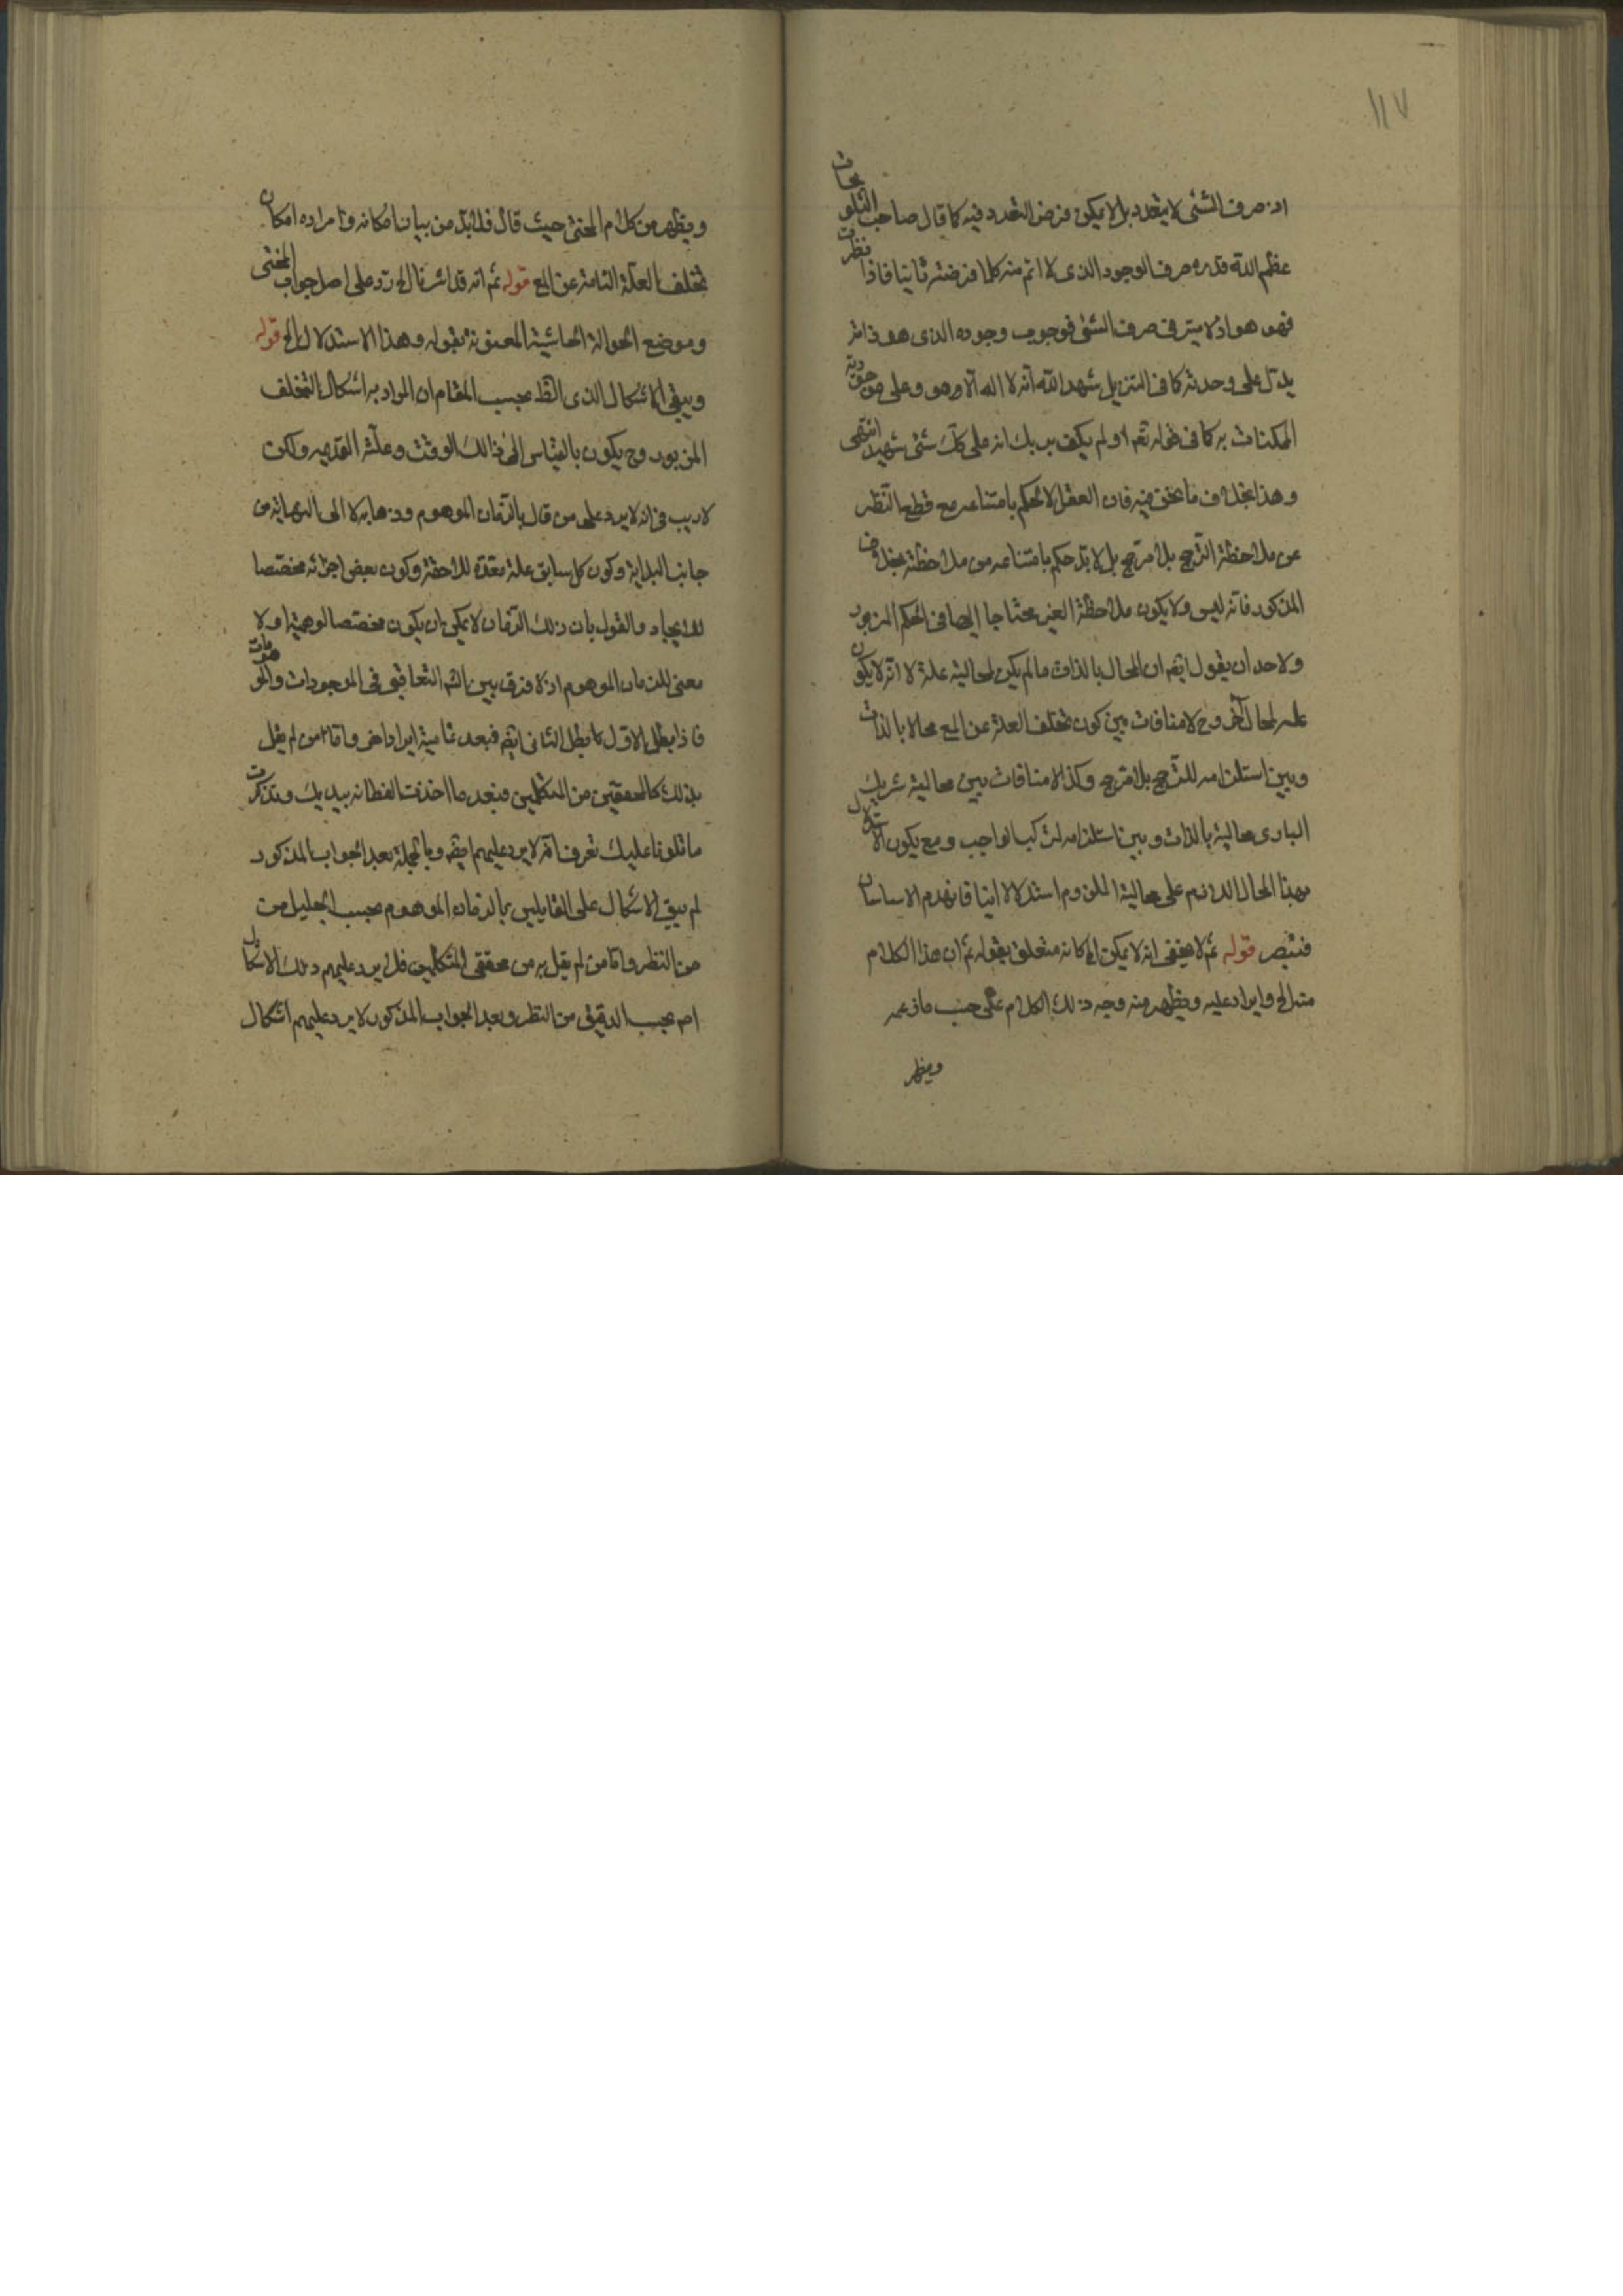 ١١٧
اذ صرف الشئ لا يتعدد بل لا يمكن فرض التعدد فيه كما قال صاحب التلويحات
عظم الله قدره صرف الوجود الذى لا اتم منه كلما فرضته ثانيا فاذا نظرت
فهو هو اذ لا ميز فى صرف الشئ فوجوب وجوده الذى هو ذاته
يدل على وحدته كما فى التنزيل شهد الله انه لا اله الا هو وعلى موجودية
الممكنات به كما فى قوله تعه او لم يكف بربك انه على كل شئ شهيد انتهى
وهذا بخلاف ما نحن فيه فان العقل لا يحكم بامتناعه مع قطع النظر
عن ملاحظة الترجح بلا مرجح بل لابد حكم بامتناعه من ملاحظته بخلاف
المذكور فانه ليس ولا يكون ملاحظة الغير محتاجا اليها فى الحكم المزبور
ولاحد ان يقول ايضم ان المحال بالذات ما لم يكن لمحاليته علة لا انه لا يكون
علة لمحال آخر وح لا منافات بين كون تخلف العلة عن المع محالا بالذات
وبين استلزامه للترجح بلا مرجح وكذا لا منافات بين محالية شريك
البارى محالية بالذات وبين استلزامه لتركيب الواجب ومع يكون الاستدلال
بهذا المحال اللازم على محالية الملزوم استدلالا انيا فانهدم الاساسان
فتبصر قوله ثم لا يخفى انه لا يمكن الح كانه متعلق بقوله ثم ان هذا الكلام
منه الح وايراد عليه ويظهر منه وجه ذلك الكلام على حسب ما زعمه
ويظهر
ويظهر من كلام المحشى حيث قال فلابد من بيان امكانه وما مراده امكان
تخلف العلة التامة عن المع قوله ثم انه قد اشرنا الح رد على اصل جواب المحشى
وموضع الحوالة الحاشية المعنونة بقوله وهذا الاستدلال الح قوله
ويبقى الاشكال الذى الظ بحسب المقام ان المراد به اشكال التخلف
المزبور وح يكون بالقياس الى ذلك الوقت وعلته القديمه ولكن
لا ريب فى انه لا يرد على من قال بالزمان الموهوم وذهابه لا الى النهاية من
جانب البداية وكون كل سابق علة معدة للاحقة وكون بعض اجزائه مختصا
للايجاد والقول بان ذلك الزمان لا يمكن ان يكون مختصا لوهميته او لا
معنى للزمان الموهوم اذ لا فرق بين التم التعاقبى فى الموجودات والموهومات
فاذا بطل الاول بطل الثانى ايضم فبعد تماميته ايراد اخر واما من لم يقل
بذلك كالمحققين من المتكلمين فبعد ما اخذت الفطانة بيديك وتذكرت
ما تلونا عليك تعرف انه لا يرد عليهم ايضم وبالجملة بعد الجواب المذكور
لم يبق الاشكال على القايلين بالزمان الموهوم بحسب الجليل من
من النظر واما من لم يقل به من محققى المتكلمين فلا يرد عليهم ذلك الاشكال
اصم بحسب الدقيق من النظر وبعد الجواب المذكور لا يرد عليهم اشكال